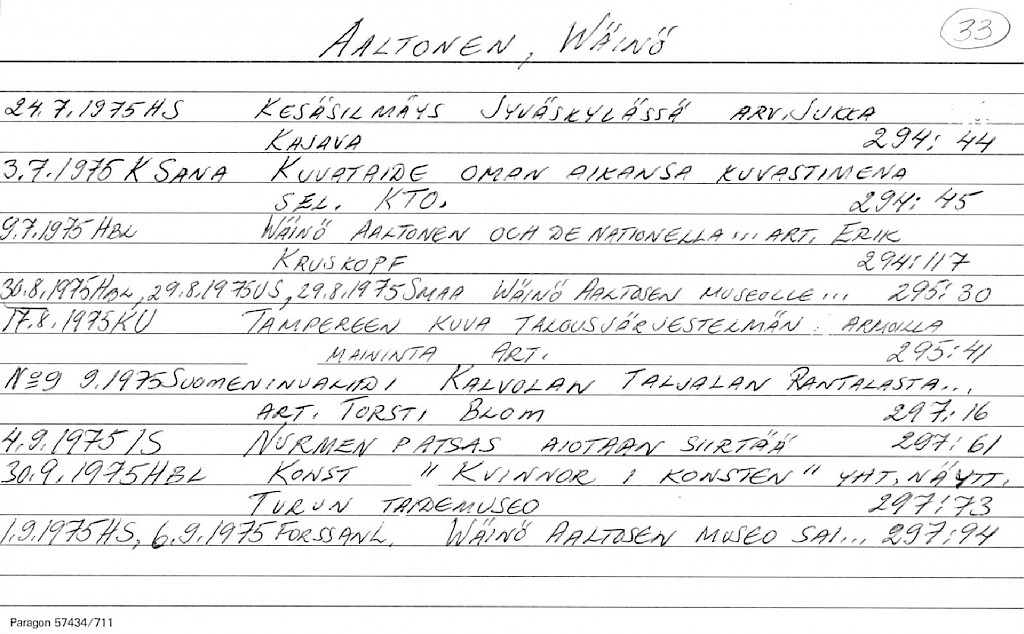 AALTONEN, WÄINÖ
33
24.7.1975 HS KESÄSILMÄYS JYVÄSKYLÄSSÄ ARV. JUKKA
KAJAVA 294: 44
3.7.1975 K SANA KUVATAIDE OMAN AIKANSA KUVASTIMENA
SEL. KTO. 294: 45
9.7.1975 HBL WÄINÖ AALTONEN OCH DE NATIONELLA... ART. ERIK
KRUSKOPF 294: 117
30.8.1975 HBL, 29.8.1975 US, 29.8.1975 SMAA WÄINÖ AALTOSEN MUSEOLLE... 295: 30
17.8.1975 KU TAMPEREEN KUVA TALOUSJÄRJESTELMÄN ARMOILLA
MAININTA ART. 295: 41
No 9 9.1975 SUOMEN INVALIDI KALVOLAN TALJALAN RANTALASTA...
ART. TORSTI BLOM 297: 16
4.9.1975 IS NURMEN PATSAS AIOTAAN SIIRTÄÄ 297: 61
30.9.1975 HBL KONST "KVINNOR I KONSTEN" YHT. NÄYTT.
TURUN TAIDEMUSEO 297: 73
1.9.1975 HS, 6.9.1975 FORSSANL. WÄINÖ AALTOSEN MUSEO SAI... 297: 94
Paragon 57434/711